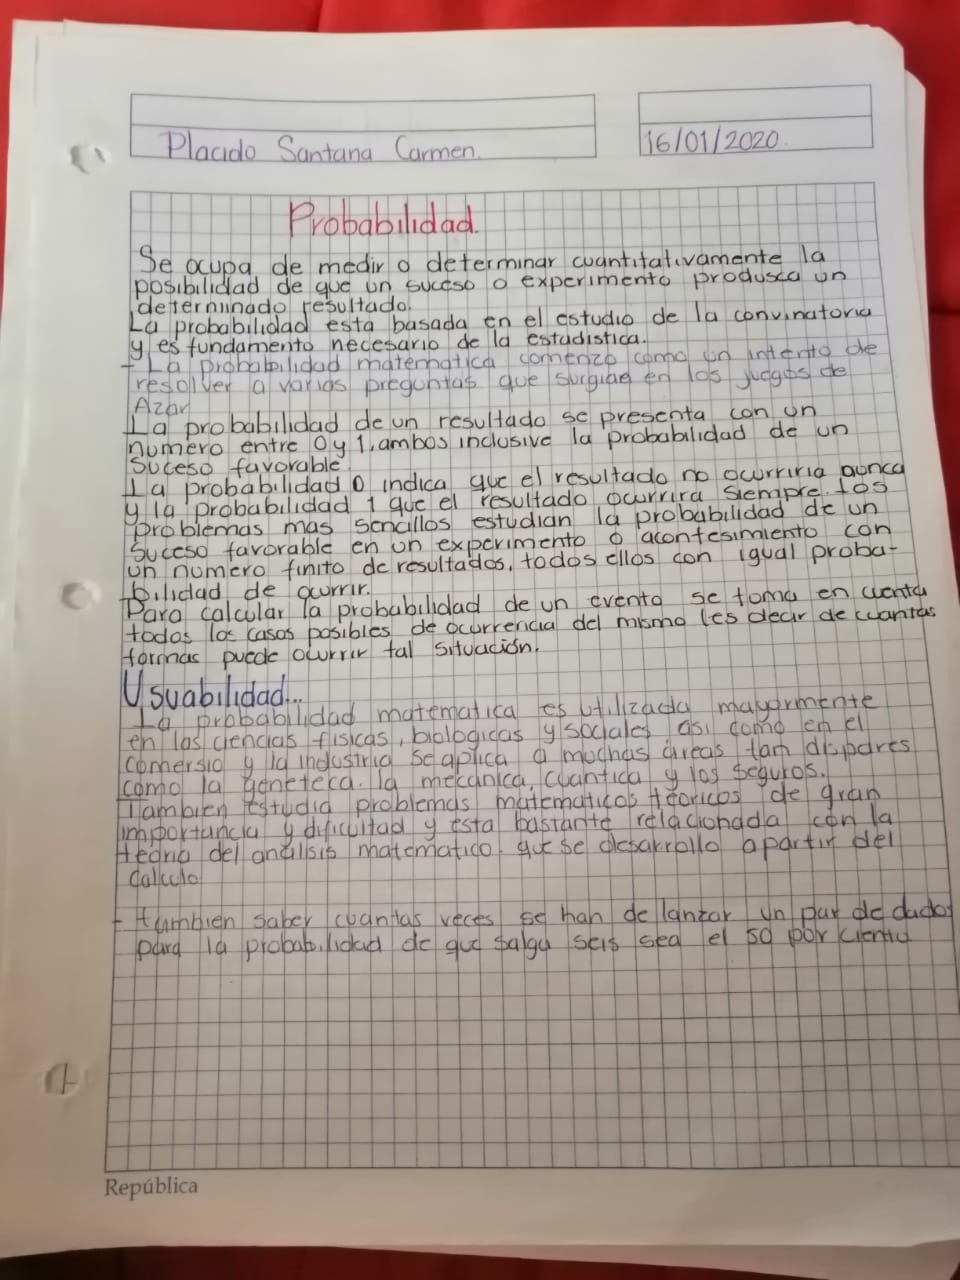 Placido Santana Carmen.
16/01/2020.
Probabilidad.
Se ocupa de medir o determinar cuantitativamente la
posibilidad de que un suceso o experimento produsca un
determinado resultado.
La probabilidad esta basada en el estudio de la convinatoria
y es fundamento necesario de la estadistica.
- La probabilidad matematica comenzo como un intento de
resolver a varias preguntas que surgiae en los juegos de
Azar
La probabilidad de un resultado se presenta con un
numero entre 0 y 1, ambos inclusive la probabilidad de un
Suceso favorable.
La probabilidad 0 indica que el resultado no ocurriria nunca
y la probabilidad 1 que el resultado ocurrira siempre. los
problemas mas sencillos estudian la probabilidad de un
Suceso favorable en un experimento o acontesimiento con
un numero finito de resultados, todos ellos con igual proba-
bilidad de ocurrir.
Para calcular la probabilidad de un evento se toma en cuenta
todos los casos posibles de ocurrencia del mismo (es decir de cuantas
formas puede ocurrir tal situación.
Usuabilidad...
La probabilidad matematica es utilizada mayormente
en las ciencias fisicas, biologicas y sociales asi como en el
comersio y la industria se aplica a muchas áreas tan dispares
como la geneteca. la mecanica, cuantica y los seguros.
Tambien estudia problemas matematicos teoricos de gran
importancia y dificultad y esta bastante relacionada con la
teoria del analisis matematico. que se desarrollo a partir del
Calculo
- tambien saber cuantas veces se han de lanzar un par de dados
para la probabilidad de que salga seis sea el 50 por ciento
República